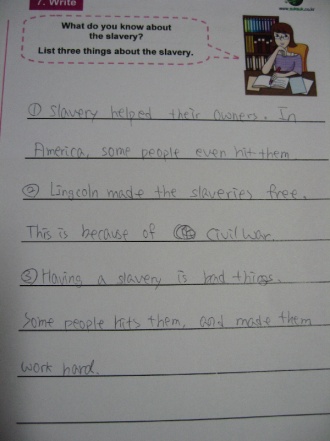 7. Write
What do you know about
the slavery?
List three things about the slavery.
① Slavery helped their owners. In
America, some people even hit them
② Lingcoln made the slaveries free.
This is because of Civil War.
③ Having a slavery is bad things.
Some people hits them, and made them
work hard.